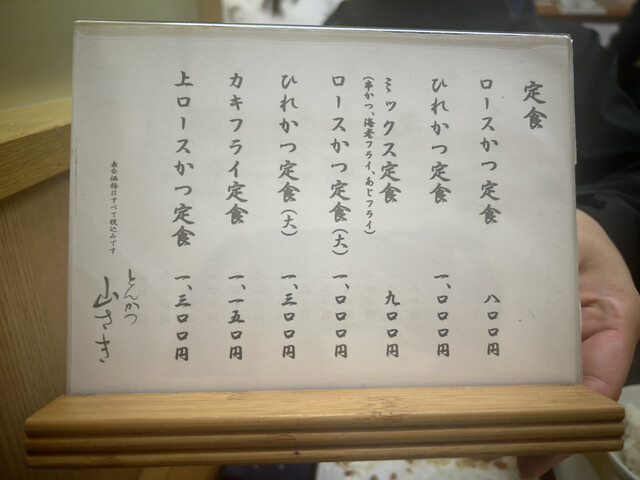 定食
ロースかつ定食 八〇〇円
ひれかつ定食 一、〇〇〇円
ミックス定食 九〇〇円
(串かつ、海老フライ、あじフライ)
ロースかつ定食(大) 一、〇〇〇円
ひれかつ定食(大) 一、三〇〇円
カキフライ定食 一、一五〇円
上ロースかつ定食 一、三〇〇円
表示価格はすべて税込みです
とんかつ
山さき